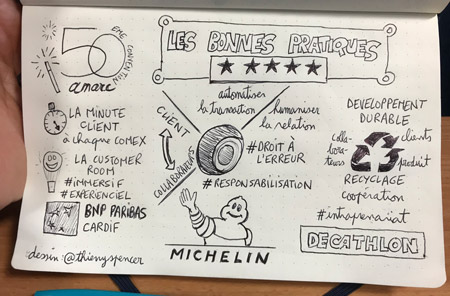 50
EME CONVENTION
amarc
LES BONNES PRATIQUES
automatiser
la transaction
humaniser
la relation
CLIENT
COLLABORATEURS
LA MINUTE
CLIENT
à chaque COMEX
LA CUSTOMER
ROOM
#IMMERSIF
#EXPERIENCIEL
BNP PARIBAS
CARDIF
#DROIT À
L'ERREUR
#RESPONSABILISATION
MICHELIN
DEVELOPPEMENT
DURABLE
colla-
bora-
teurs
clients
produit
RECYCLAGE
coopération
#intrapreneuriat
DECATHLON
dessin: @thierryspencer